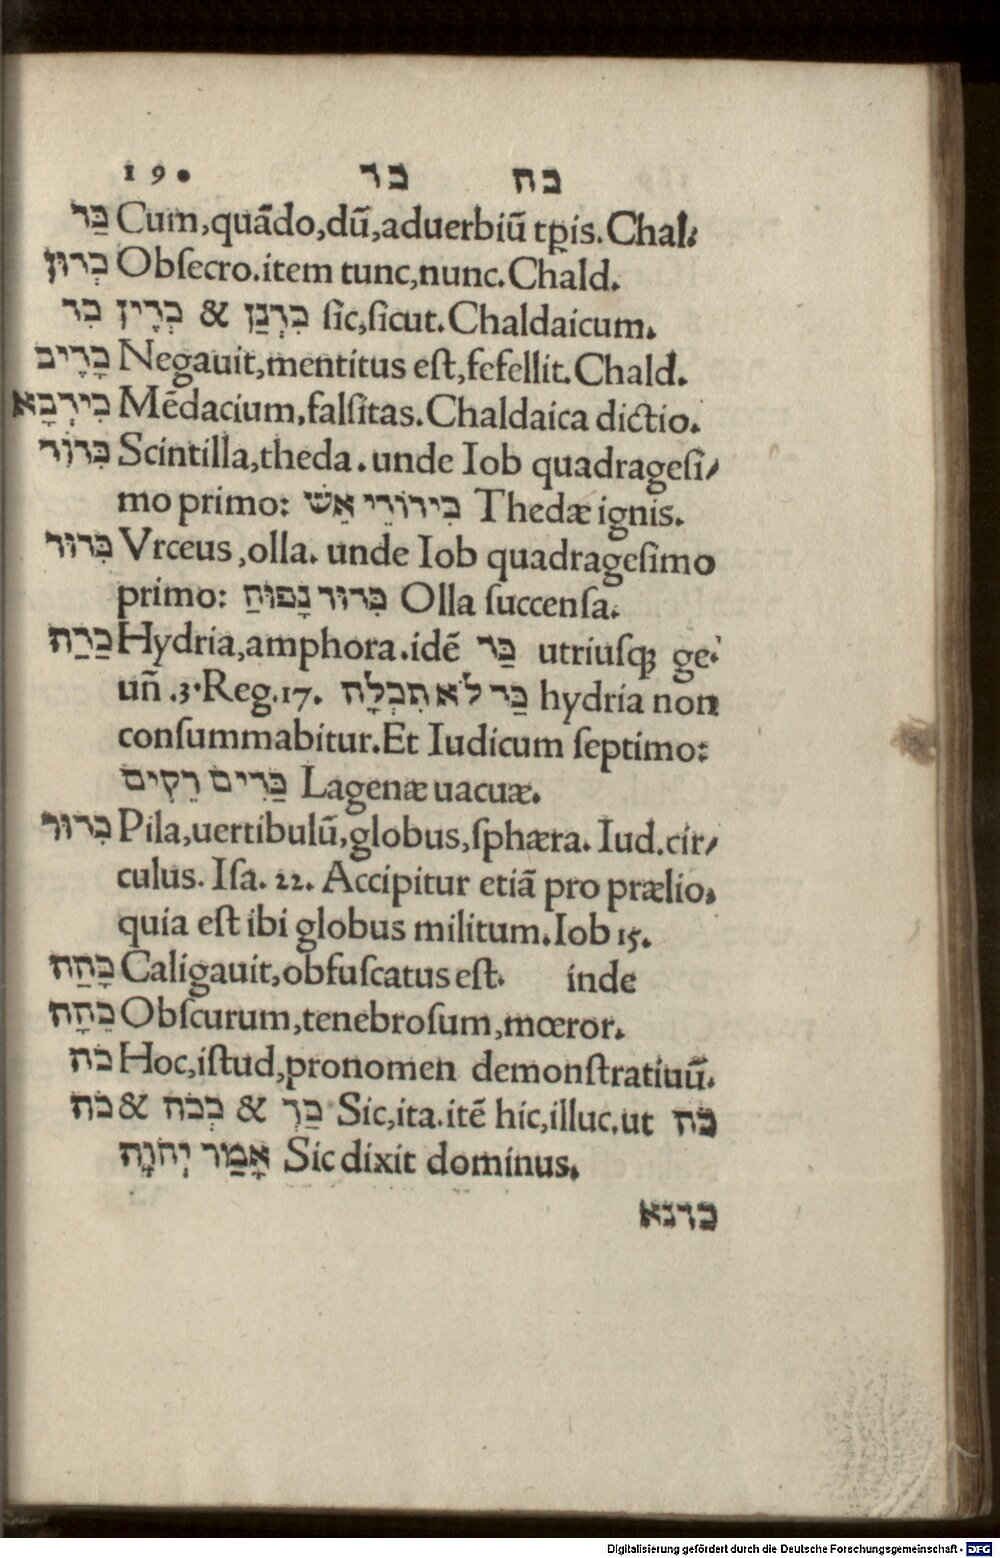 19• כד כה
כַּד Cum,quādo,dū,aduerbiū tp̄is.Chal.
כְּדוּן Obſecro.item tunc,nunc.Chald.
כִּד כְּדֵין & כִּדְנַן ſic,ſicut.Chaldaicum.
כָּדֵיב Negauit,mentitus eſt,fefellit.Chald.
כִּידְבָא Mēdacium,falſitas.Chaldaica dictio.
כִּדוֹד Scintilla,theda.unde Iob quadrageſi/
mo primo: כִּידוֹדֵי אֵשׁ Thedæ ignis.
כִּדוּד Vrceus,olla. unde Iob quadrageſimo
primo: כִּדוּד נָפוּחַ Olla ſuccenſa.
כַּדַה Hydria,amphora.idē כַּד utriuſqꝫ ge.
uñ .3.Reg.17. כַּד לֹא תִכְלָה hydria non
conſummabitur.Et Iudicum ſeptimo:
כַּדִים רֵקִים Lagenæ uacuæ.
כִּדוּר Pila,uertibulū,globus,ſphæra. Iud.cir/
culus. Iſa. 22. Accipitur etiā pro prælio,
quia eſt ibi globus militum.Iob 15.
כָּהַה Caligauit,obfuſcatus eſt. inde
כֵּהָה Obſcurum,tenebroſum,mœror.
כֹה Hoc,iſtud,pronomen demonſtratiuū.
כֹּה & כְּכֹה & כַּךְ Sic,ita.itē hic,illuc.ut כֹּה
אָמַר יְהֹוָה Sic dixit dominus.
כהנא
Digitalisierung gefördert durch die Deutsche Forschungsgemeinschaft - DFG